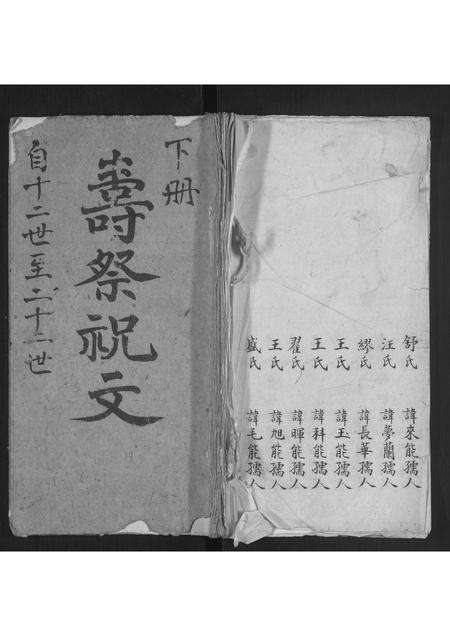 舒氏 諱來能孺人
汪氏 諱夢蘭孺人
繆氏 諱長華孺人
王氏 諱玉能孺人
王氏 諱科能孺人
翟氏 諱暉能孺人
王氏 諱旭能孺人
盛氏 諱毛能孺人
下册
壽祭祝文
自十二世至二十一世